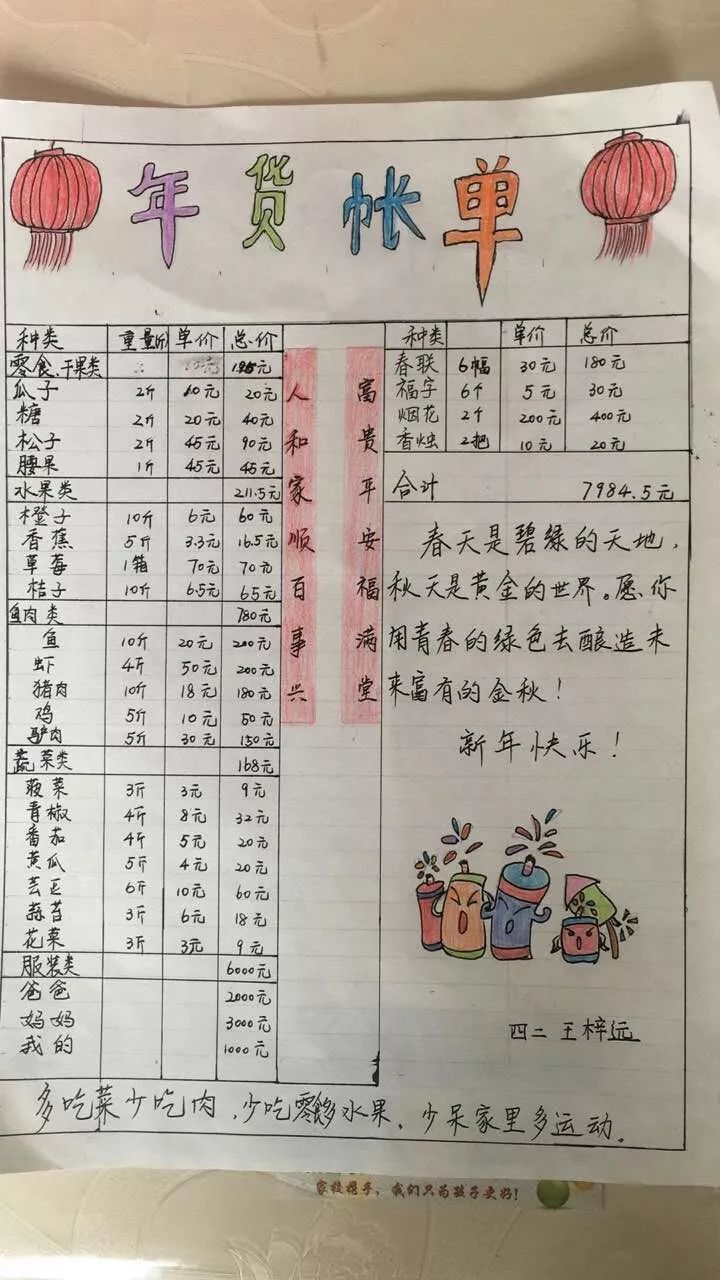 年货帐单
种类 重量斤 单价 总价
零食、干果类 195元
瓜子 2斤 10元 20元
糖 2斤 20元 40元
松子 2斤 45元 90元
腰果 1斤 45元 45元
水果类 211.5元
橙子 10斤 6元 60元
香蕉 5斤 3.3元 16.5元
草莓 1箱 70元 70元
桔子 10斤 6.5元 65元
鱼肉类 780元
鱼 10斤 20元 200元
虾 4斤 50元 200元
猪肉 10斤 18元 180元
鸡 5斤 10元 50元
驴肉 5斤 30元 150元
蔬菜类 168元
菠菜 3斤 3元 9元
青椒 4斤 8元 32元
番茄 4斤 5元 20元
黄瓜 5斤 4元 20元
芸豆 6斤 10元 60元
蒜苔 3斤 6元 18元
花菜 3斤 3元 9元
服装类 6000元
爸爸 2000元
妈妈 3000元
我的 1000元
人和家顺百事兴
高贵平安福满堂
种类 单价 总价
春联 6幅 30元 180元
福字 6个 5元 30元
烟花 2个 200元 400元
香烛 2把 10元 20元
合计 7984.5元
春天是碧绿的天地，
秋天是黄金的世界。愿你
用青春的绿色去酿造未
来富有的金秋！
新年快乐！
四二 王梓远
多吃菜少吃肉，少吃零食多水果，少呆家里多运动。
家校携手，我们只为孩子更好！